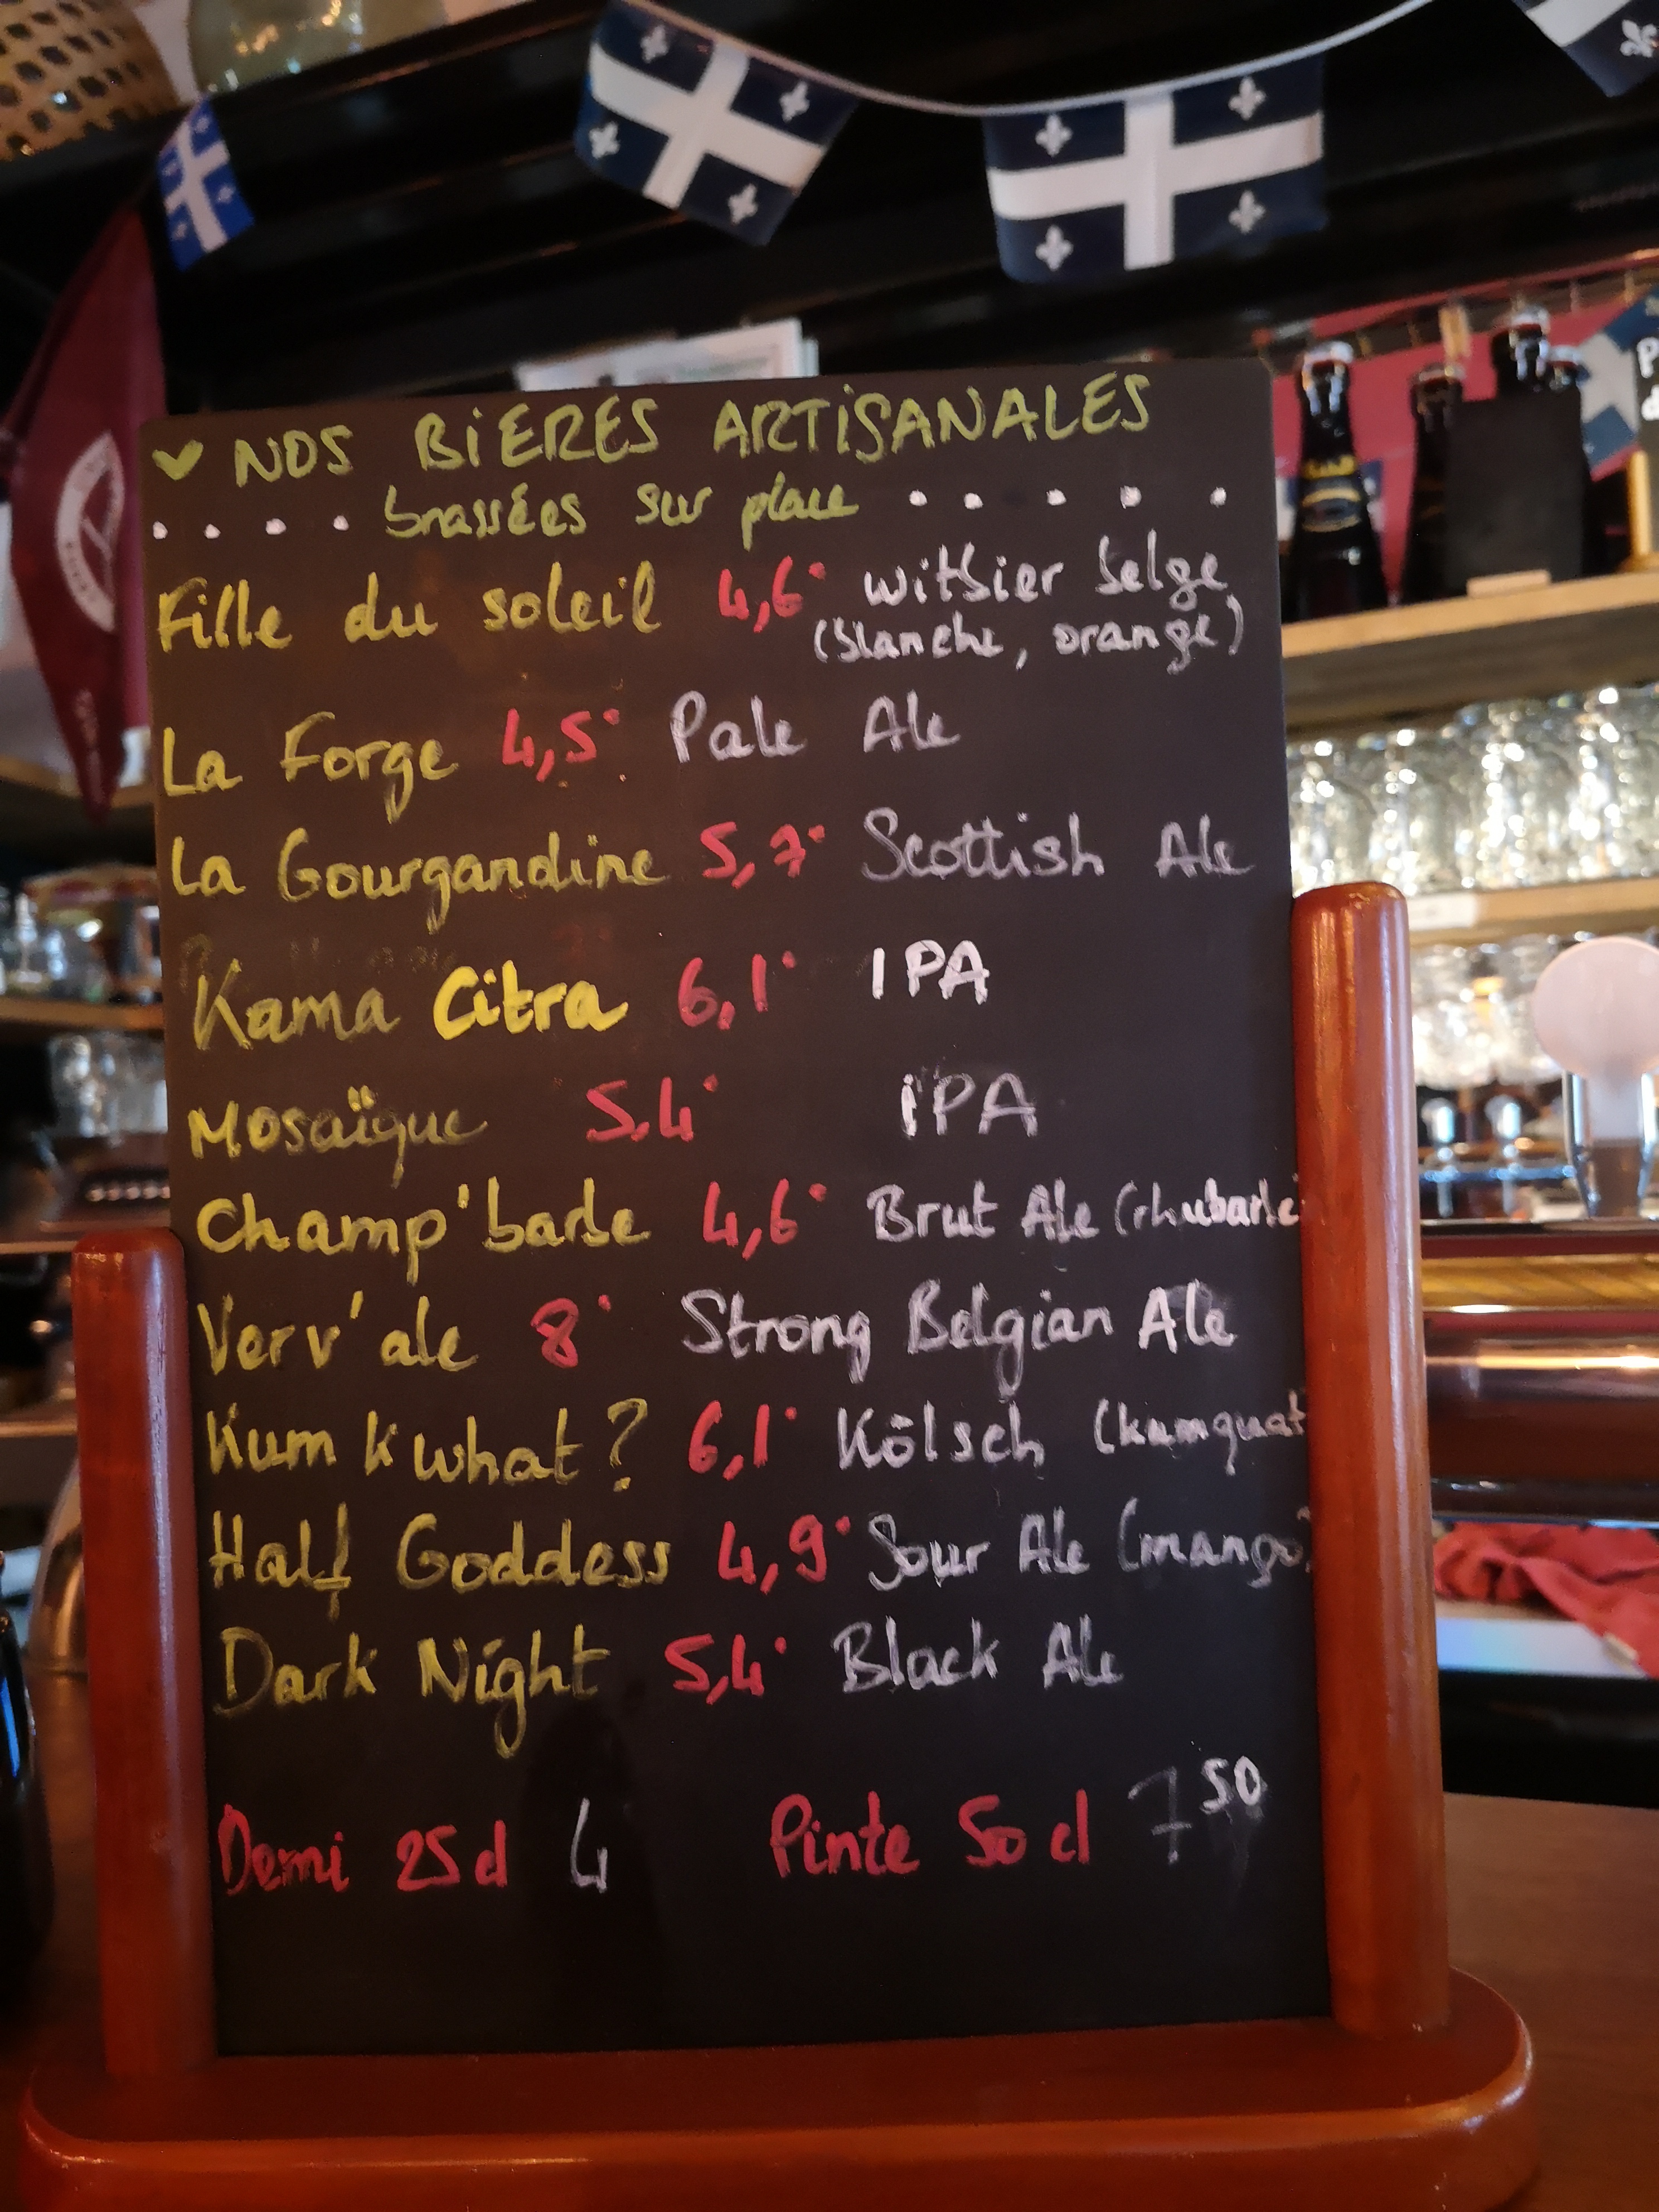 NOS BIERES ARTISANALES
brassées sur place
Fille du soleil 4,6° witbier belge
(blanche, orange)
La Forge 4,5° Pale Ale
La Gourgandine 5,7° Scottish Ale
Kama Citra 6,1° IPA
Mosaïque 5,4° iPA
Champ'barbe 4,6° Brut Ale (rhubarbe)
Verv'ale 8° Strong Belgian Ale
Kum k what? 6,1° Kölsch (kumquat
Half Goddess 4,9° Sour Ale (mango)
Dark Night 5,4° Black Ale
Demi 25cl 4 Pinte 50 cl 7 50